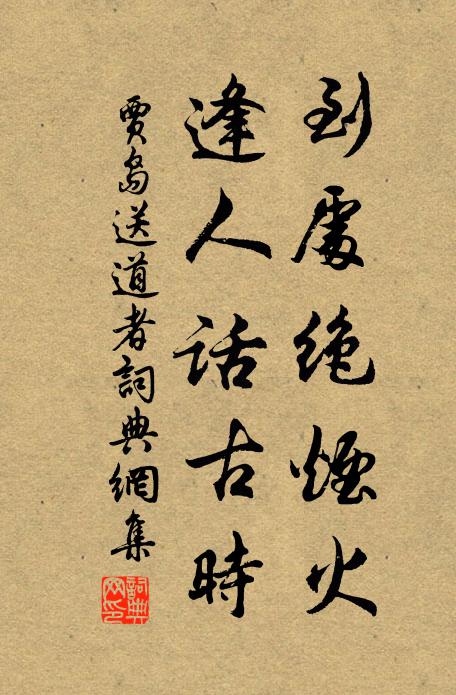 到處絶煙火
逢人話古時
賈島送道者詞典網集
詞典网印